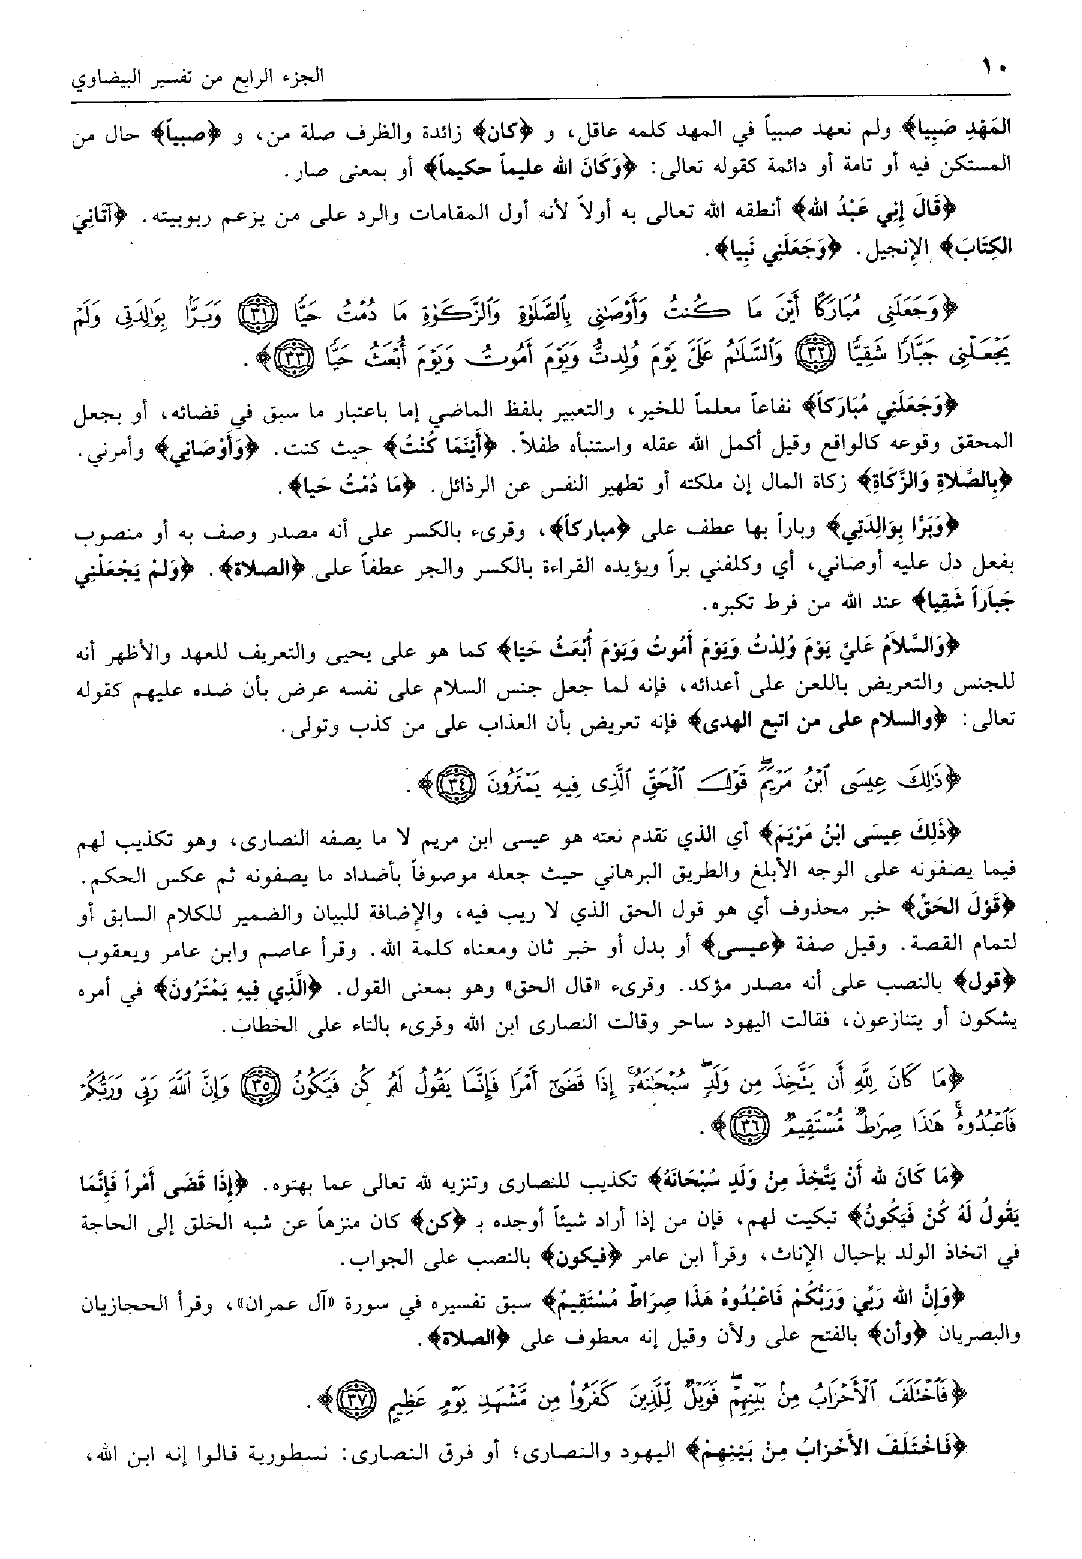 ١٠
الجزء الرابع من تفسير البيضاوي
المَهْدِ صَبِيا﴾ ولم نعهد صبياً في المهد كلمه عاقل، و ﴿كان﴾ زائدة والظرف صلة من، و ﴿صبياً﴾ حال من
المستكن فيه أو تامة أو دائمة كقوله تعالى: ﴿وَكَانَ الله عليماً حكيماً﴾ أو بمعنى صار.
﴿قَالَ إِنِي عَبْدُ الله﴾ أنطقه الله تعالى به أولاً لأنه أول المقامات والرد على من يزعم ربوبيته. ﴿آتَانِيَ
الكِتَابَ﴾ الإِنجيل. ﴿وَجَعَلَنِي نَبِيا﴾.
﴿وَجَعَلَنِى مُبَارَكًا أَيْنَ مَا كُنتُ وَأَوْصَٰنِى بِٱلصَّلَوٰةِ وَٱلزَّكَوٰةِ مَا دُمْتُ حَيًّا (٣١) وَبَرًّا بِوَٰلِدَتِى وَلَمْ
يَجْعَلْنِى جَبَّارًا شَقِيًّا (٣٢) وَٱلسَّلَٰمُ عَلَىَّ يَوْمَ وُلِدتُّ وَيَوْمَ أَمُوتُ وَيَوْمَ أُبْعَثُ حَيًّا (٣٣)﴾.
﴿وَجَعَلَنِي مُبَارَكاً﴾ نفاعاً معلماً للخير، والتعبير بلفظ الماضي إما باعتبار ما سبق في قضائه، أو بجعل
المحقق وقوعه كالواقع وقيل أكمل الله عقله واستنبأه طفلاً. ﴿أَيْنَمَا كُنْتُ﴾ حيث كنت. ﴿وَأَوْصَانِي﴾ وأمرني.
﴿بِالصَّلاَةِ وَالزَّكَاةِ﴾ زكاة المال إن ملكته أو تطهير النفس عن الرذائل. ﴿مَا دُمْتُ حَيا﴾.
﴿وَبَرًّا بِوَالِدَتِي﴾ وباراً بها عطف على ﴿مباركاً﴾، وقرىء بالكسر على أنه مصدر وصف به أو منصوب
بفعل دل عليه أوصاني، أي وكلفني براً ويؤيده القراءة بالكسر والجر عطفاً على ﴿الصلاة﴾. ﴿وَلَمْ يَجْعَلْنِي
جَبَاراً شَقِيا﴾ عند الله من فرط تكبره.
﴿وَالسَّلاَمُ عَلَيَّ يَوْمَ وُلِدْتُ وَيَوْمَ أَمُوتُ وَيَوْمَ أُبْعَثُ حَيا﴾ كما هو على يحيى والتعريف للعهد والأظهر أنه
للجنس والتعريض باللعن على أعدائه، فإنه لما جعل جنس السلام على نفسه عرض بأن ضده عليهم كقوله
تعالى: ﴿والسلام على من اتبع الهدى﴾ فإنه تعريض بأن العذاب على من كذب وتولى.
﴿ذَٰلِكَ عِيسَى ٱبْنُ مَرْيَمَ قَوْلَ ٱلْحَقِّ ٱلَّذِى فِيهِ يَمْتَرُونَ (٣٤)﴾.
﴿ذَلِكَ عِيسَى ابْنُ مَرْيَمَ﴾ أي الذي تقدم نعته هو عيسى ابن مريم لا ما يصفه النصارى، وهو تكذيب لهم
فيما يصفونه على الوجه الأبلغ والطريق البرهاني حيث جعله موصوفاً بأضداد ما يصفونه ثم عكس الحكم.
﴿قَوْلَ الحَقِّ﴾ خبر محذوف أي هو قول الحق الذي لا ريب فيه، والإِضافة للبيان والضمير للكلام السابق أو
لتمام القصة. وقيل صفة ﴿عيسى﴾ أو بدل أو خبر ثان ومعناه كلمة الله. وقرأ عاصم وابن عامر ويعقوب
﴿قول﴾ بالنصب على أنه مصدر مؤكد. وقرىء «قال الحق» وهو بمعنى القول. ﴿الَّذِي فِيهِ يَمْتَرُونَ﴾ في أمره
يشكون أو يتنازعون، فقالت اليهود ساحر وقالت النصارى ابن الله وقرىء بالتاء على الخطاب.
﴿مَا كَانَ لِلَّهِ أَن يَتَّخِذَ مِن وَلَدٍ سُبْحَٰنَهُۥٓ إِذَا قَضَىٰٓ أَمْرًا فَإِنَّمَا يَقُولُ لَهُۥ كُن فَيَكُونُ (٣٥) وَإِنَّ ٱللَّهَ رَبِّى وَرَبُّكُمْ
فَٱعْبُدُوهُ هَٰذَا صِرَٰطٌ مُّسْتَقِيمٌ (٣٦)﴾.
﴿مَا كَانَ لله أَنْ يَتَّخِذَ مِنْ وَلَدٍ سُبْحَانَهُ﴾ تكذيب للنصارى وتنزيه لله تعالى عما بهتوه. ﴿إِذَا قَضَى أَمْراً فَإِنَّمَا
يَقُولُ لَهُ كُنْ فَيَكُونُ﴾ تبكيت لهم، فإن من إذا أراد شيئاً أوجده بـ ﴿كن﴾ كان منزهاً عن شبه الخلق إلى الحاجة
في اتخاذ الولد بإحبال الإِناث، وقرأ ابن عامر ﴿فيكون﴾ بالنصب على الجواب.
﴿وَإِنَّ الله رَبِّي وَرَبُّكُمْ فَاعْبُدُوهُ هَذَا صِرَاطٌ مُسْتَقِيمٌ﴾ سبق تفسيره في سورة «آل عمران»، وقرأ الحجازيان
والبصريان ﴿وأن﴾ بالفتح على ولأن وقيل إنه معطوف على ﴿الصلاة﴾.
﴿فَٱخْتَلَفَ ٱلْأَحْزَابُ مِنۢ بَيْنِهِمْ فَوَيْلٌ لِّلَّذِينَ كَفَرُوا۟ مِن مَّشْهَدِ يَوْمٍ عَظِيمٍ (٣٧)﴾.
﴿فَاخْتَلَفَ الأَحْزَابُ مِنْ بَيْنِهِمْ﴾ اليهود والنصارى؛ أو فرق النصارى: نسطورية قالوا إنه ابن الله،